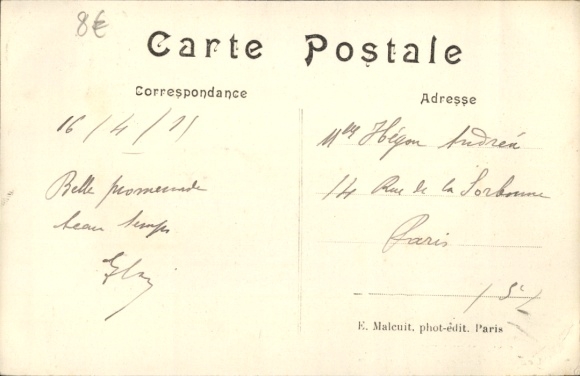 8€
Carte Postale
Correspondance
Adresse
16/4/11
Belle promenade
beau temps
Mlle Hégon Andréa
14 Rue de la Sorbonne
Paris
(5e)
E. Malcuit, phot-édit. Paris